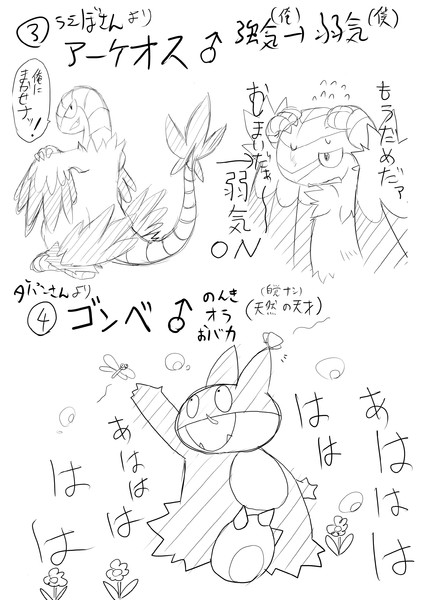 ③ らぼさんより
アーケオス♂ 強気(俺)→弱気(僕)
俺に
まかせナッ!!
もうだめだァ
むぃまぃだぁ〜
→弱気
ON
ダパンさんより
④ ゴンベ♂
のんき
オラ
おバカ
(白天ナン)
(天然の天才)
あはは
はは
あははは
はは
はは